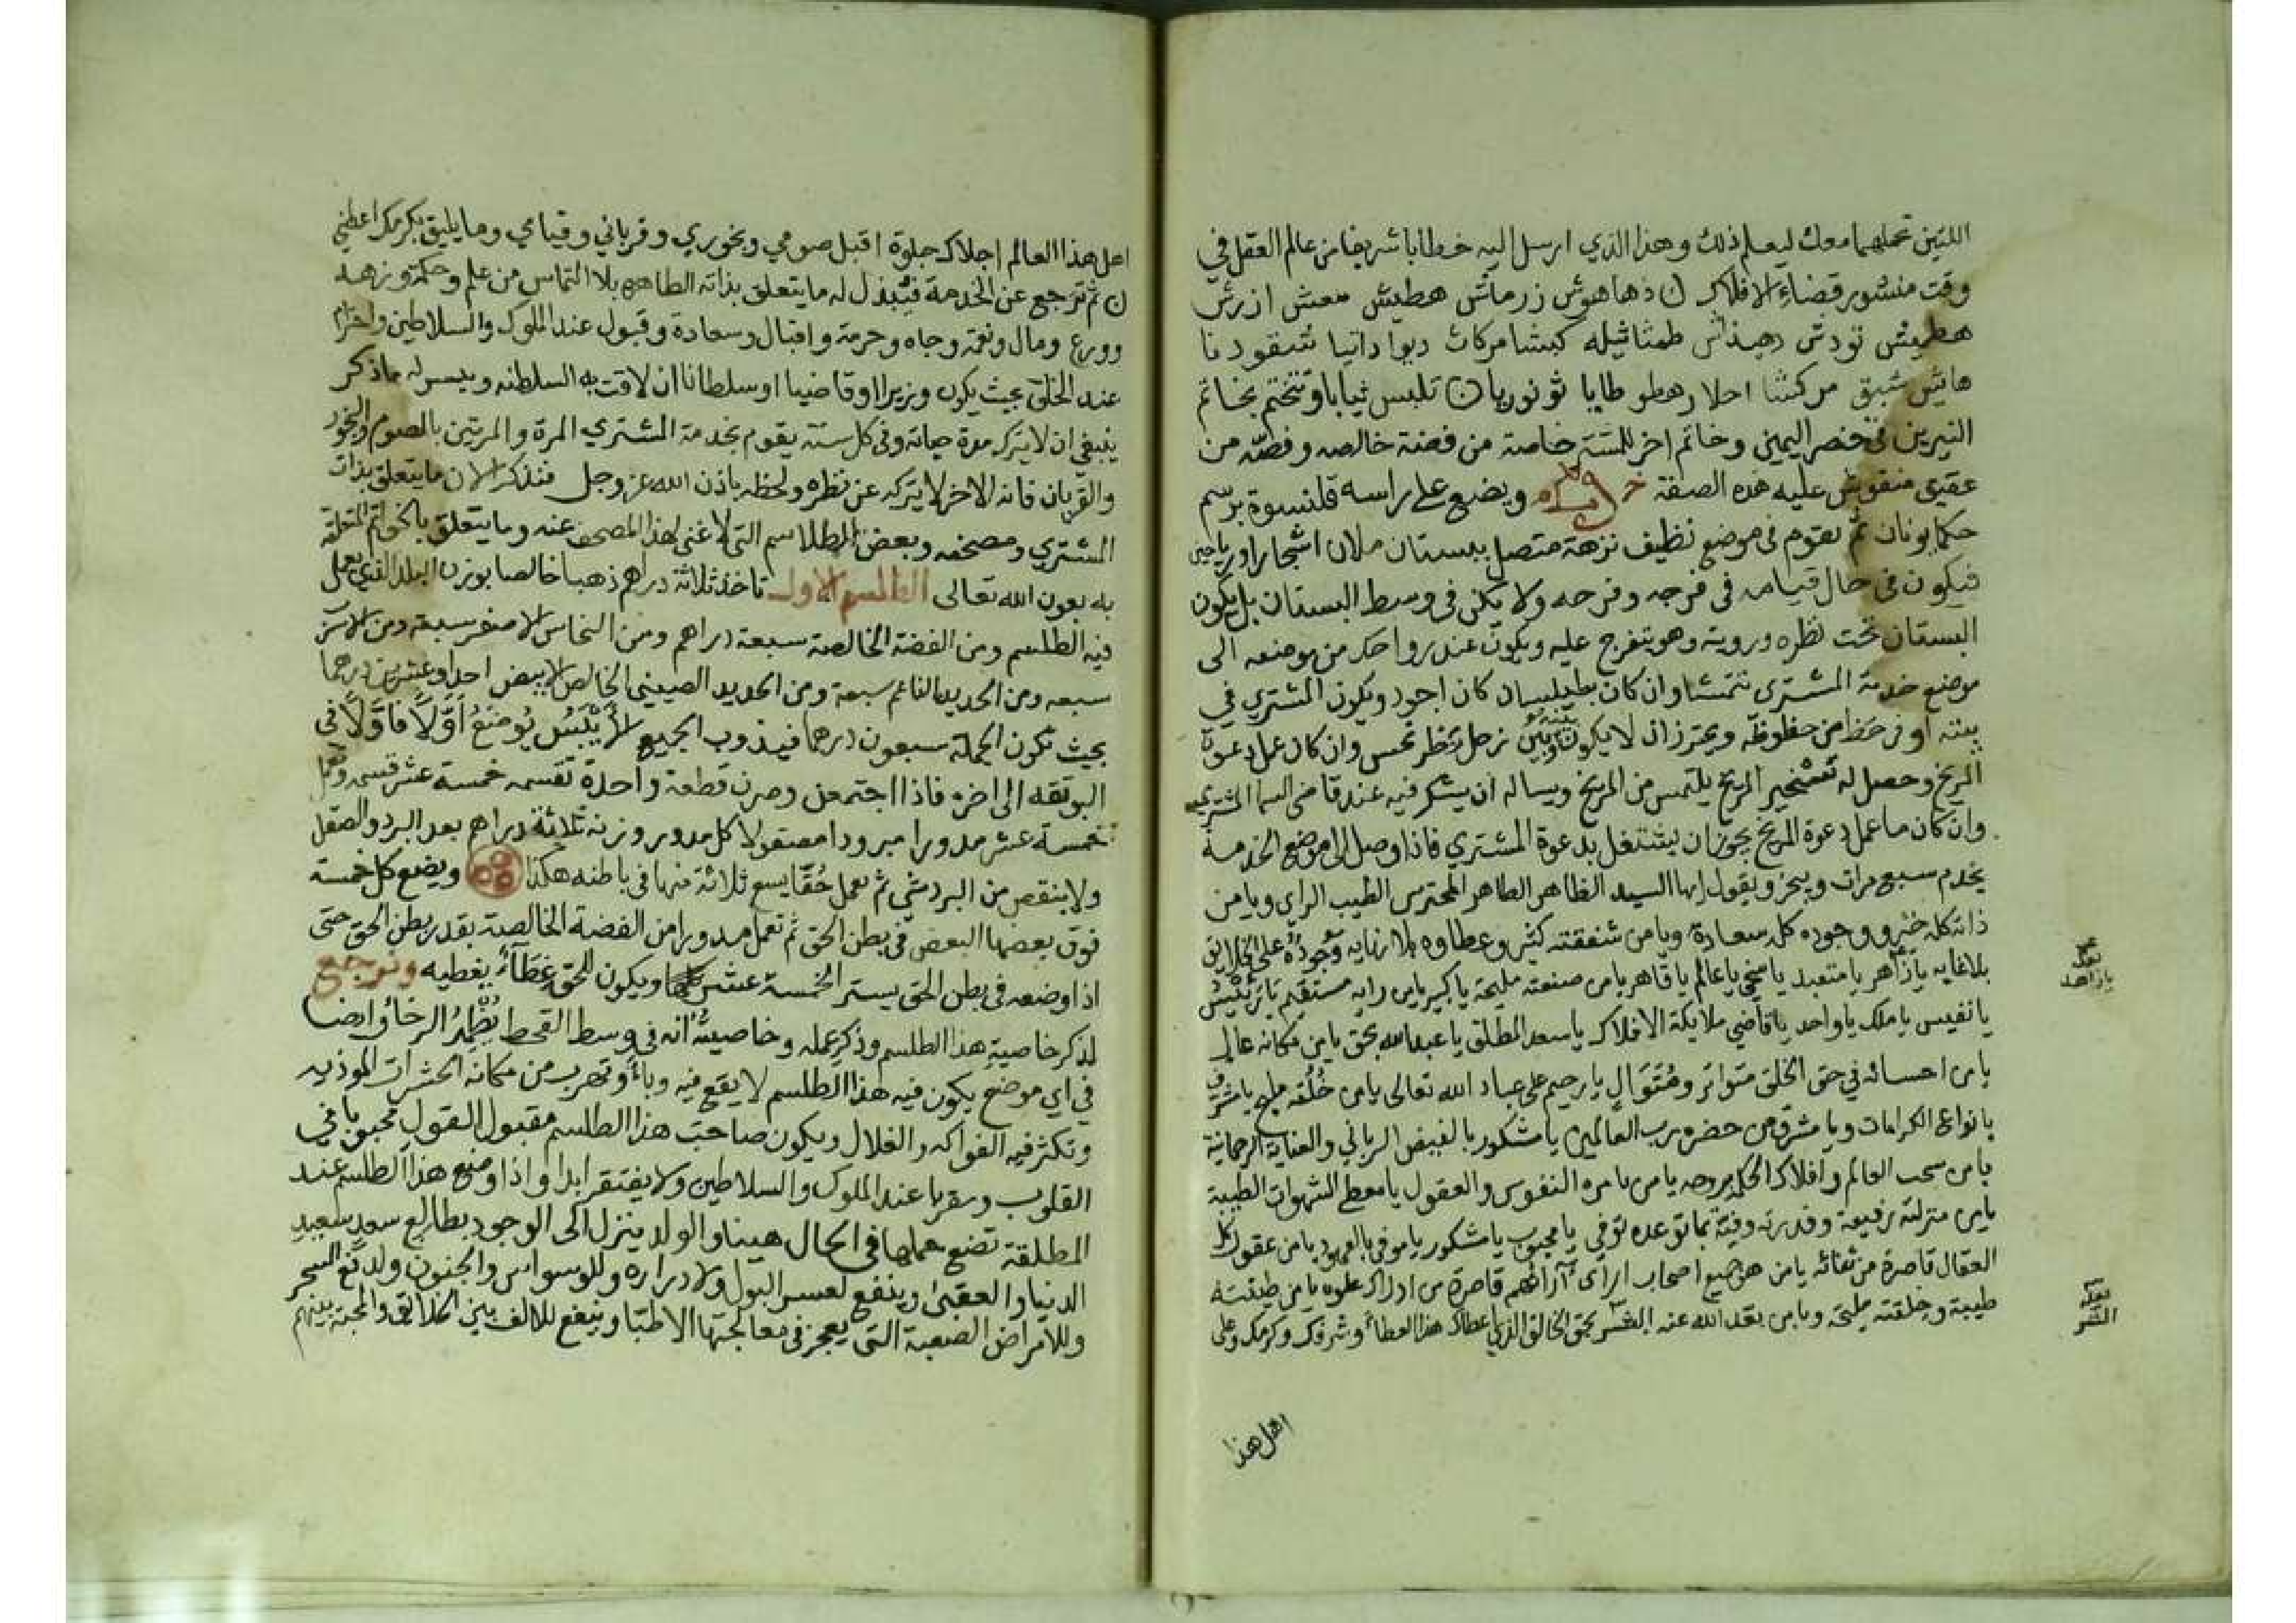 اللتين تحملهما معك ليعلم ذلك وهذا الذي ارسل اليه خطابا شريفا من عالم العقل في
وقت منشور قضاء الافلاك ن ذهاهوش زرماش هطيش معش ازرش
هطيش نودش دهيذاس طمثاثيله كبشامركات ديواداتيا شقودنا
هايش شبق مركشا احلار هطو طايا ثونوريان تلبس ثيابا وتتختم بخاتم
النيرين في خنصر اليمين وخاتم اخر للمشتري خاصة من فضة خالصه وفصّه من
عقيق منقوش عليه هذه الصفة ويضع على راسه قلنسوة برسم
حكما يونان ثم يقوم في موضع نظيف نزهة متصل ببستان ملان اشجارا ورياحين
فيكون في حال قيامه في فرجه وفرحه ولا يكن في وسط البستان بل يكون
البستان تحت نظره ورويته وهو يتفرج عليه ويكون عند رواحك من موضعه الى
موضع خدمة المشتري تتمشا وان كان بطيلسان كان اجود ويكون المشتري في
بيته او في حظ من حظوظه ويحترز ان لا يكون بينه وبين زحل بنظر نحس وان كان عمل دعوة
المريخ وحصل له تسخير المريخ يلتمس من المريخ ويساله ان يشكر فيه عند قاضي السما المشتري
وان كان ما عمل دعوة المريخ يجوز ان يشتغل بدعوة المشتري فاذا وصل الى موضع الخدمة
يخدم سبع مرات ويبخر ويقول ايها السيد الظاهر الطاهر المحترس الطيب الراي ويا من
ذاته كله خير ووجوده كله سعادة ويا من شفقته كثير وعطاوه بلا نهايه وجوده على الخلايق
بلاغايه يا زاهر يا متعبد يا سخي يا عالم يا قاهر يا من صنعته مليحة يا كبير يا من رايه مستقيم يا رئيس
يا نفيس يا ملك يا واحد يا قاضي ملايكة الافلاك يا سعد المطلق يا عبد الله بحق يا من مكانه عالي
يا من احسانه في حق الخلق متواتر ومتوال يا رحيم على عباد الله تعالى يا من خُلقه مليح يا مشرف
بانواع الكرامات ويا مشرق من حضره رب العالمين يا مشكور بالفيض الرباني والعناية الرحمانية
يا من سحب العالم وافلاك الحكم بروحه يا من بامره النفوس والعقول يا معطي الشهوات الطيبة
يا من منزلته رفيعة وقدرته وفية بما توعده توفي يا محبوب يا مشكور يا موفي بالعهود يا من عقول كل
العقال قاصرة من ثنائه يا من هو جميع اصحاب اراى آرائهم قاصرة من ادراك علوه يا من طينته
طيبة وخلقته مليحة ويا من بعد الله عنه الشر بحق الخالق الذي اعطاك هذا العطاء وشرفك وكرمك وعلى
اهل هذا
نعله
يا زاهد
نعله
الشر
اهل هذا العالم اجلاك جلوة اقبل صومي وبخوري وقرباني وقيامي وما يليق بكرمك اعطني
ن ثم ترجع عن الخدمة فيبذل له ما يتعلق بذاته الطاهره بلا التماس من علم وحكمة وزهد
وورع ومال ونعمة وجاه وحرمة واقبال وسعادة وقبول عند الملوك والسلاطين واحترام
عند الخلق بحيث يكون وزيرا او قاضيا او سلطانا ان لاقت به السلطنه وييسر له ما ذكر
ينبغي ان لا يتركه مدة حياته وفي كل سنة يقوم بخدمة المشتري المرة والمرتين بالصوم والبخور
والقربان فانه الاخر لا يتركه عن نظره ولحظه باذن الله عز وجل فنذكر الان ما يتعلق بذات
المشتري ومصحفه وبعض الطلاسم التي لا غنى لهذا المصحف عنه وما يتعلق بالخواتم المتعلقة
به بعون الله تعالى الطلسم الاول تاخذ ثلاثة دراهم ذهبا خالصا بوزن البلد الذي يعمل
فيه الطلسم ومن الفضة الخالصة سبعة دراهم ومن النحاس الاصفر سبعة ومن الاسرب
سبعه ومن الحديد الناعم سبعة ومن الحديد الصيني الخالص الابيض احدا وعشرين درهما
بحيث تكون الجملة سبعون درهما فيذوب الجميع الأيبس يوضع أولاً فاولاً في
البوتقه الى اخره فاذا اجتمعن وصرن قطعة واحدة تقسمه خمسة عشر قسمه وتعمل
خمسة عشر مدورا مبرودا مصقولا كل مدور وزنه ثلاثة دراهم بعد البرد والصقل
ولا ينقص من البرد شي ثم يعمل حُقّا يسع ثلاثة منها في باطنه هكذا ويضع كل خمسة
فوق بعضها البعض في بطن الحق ثم تعمل مدورا من الفضة الخالصة بقدر بطن الحق حتى
اذا وضعه في بطن الحق يستر الخمسة عشر كلها ويكون للحق غطآء يغطيه ونرجع
لذكر خاصية هذا الطلسم وذكر عمله وخاصيته انه في وسط القحط يُظهر الرخاء وايضا
في اي موضع يكون فيه هذا الطلسم لا يقع فيه وباء وتهرب من مكانه الحشرات الموذيه
وتكثر فيه الفواكه والغلال ويكون صاحب هذا الطلسم مقبول القول محبوبا في
القلوب ومقربا عند الملوك والسلاطين ولا يفتقر ابدا واذا وضع هذا الطلسم عند
المطلقة تضع حملها في الحال هينا والولد ينزل الى الوجود بطالع سعد سعيد
الدنيا والعقبى وينفع لعسر البول ولادراره وللوسواس والجنون ولدفع السحر
وللامراض الصعبة التي يعجز في معالجتها الاطبا وينفع للالف بين الخلائق والمحبة بينهم